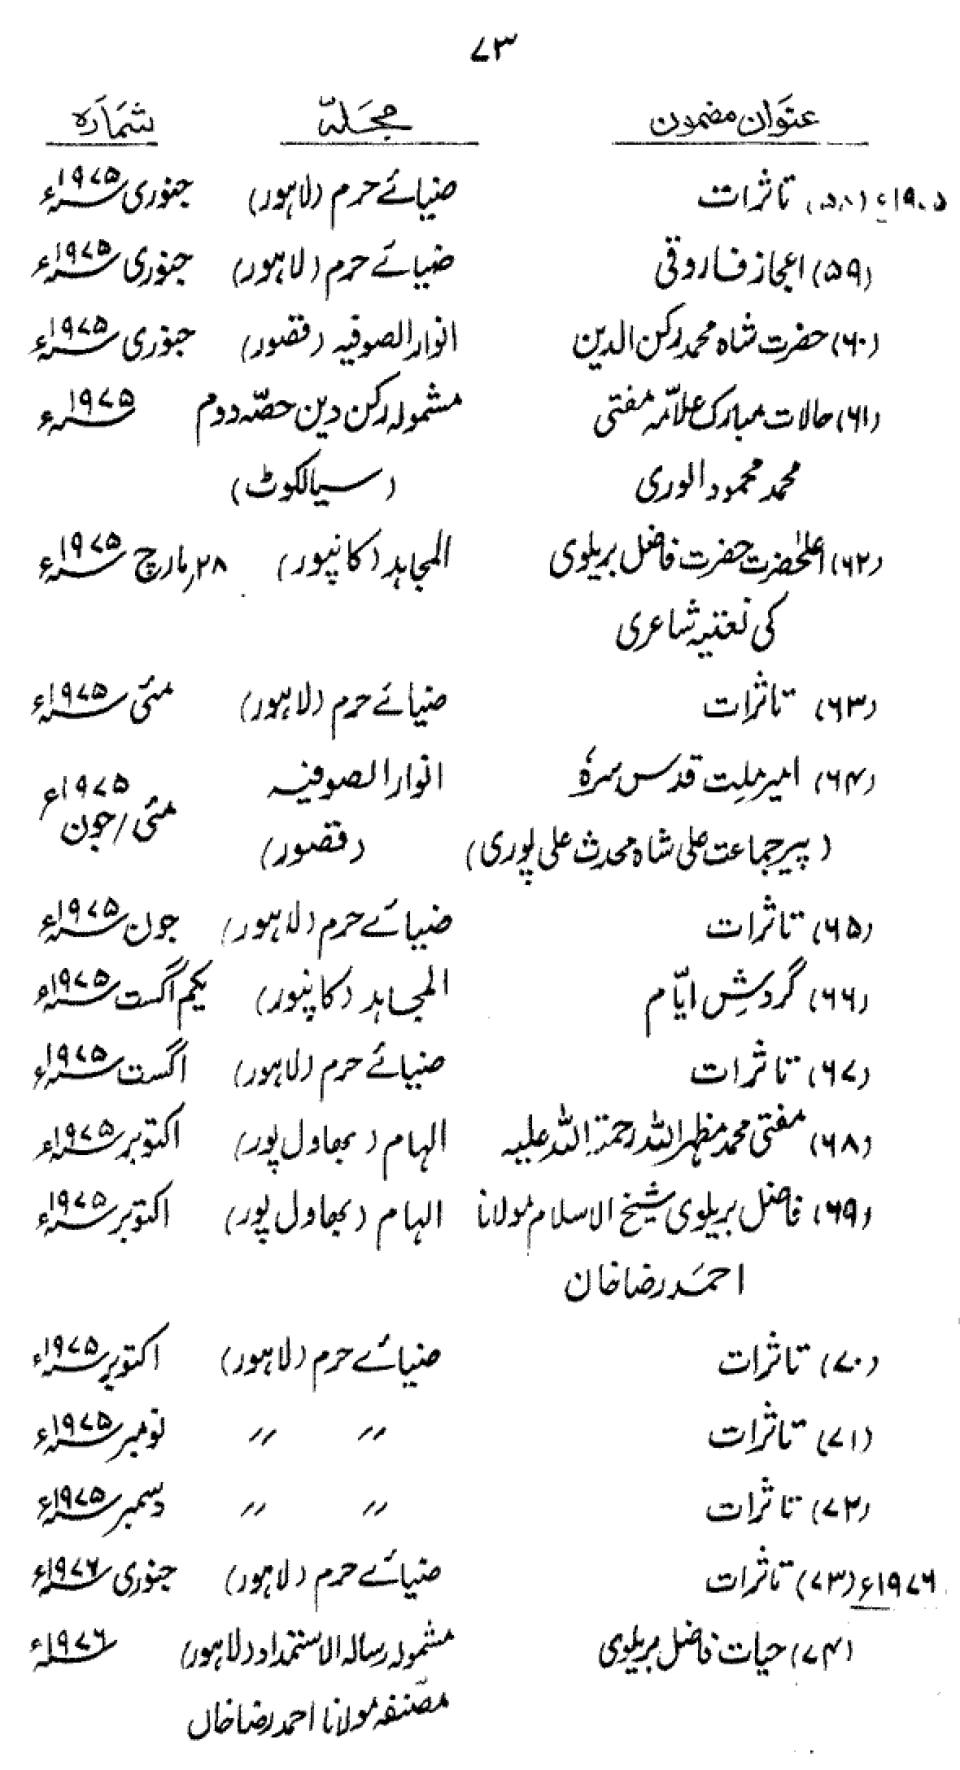 ۷۳
عنوان مضمون مجلہ شمارہ
۱۹۰۵ء (۵۸) تاثرات ضیائے حرم (لاہور) جنوری ۱۹۷۵ء
(۵۹) اعجاز فاروقی ضیائے حرم (لاہور) جنوری ۱۹۷۵ء
(۶۰) حضرت شاہ محمد رکن الدین انوار الصوفیہ (قصور) جنوری ۱۹۷۵ء
(۶۱) حالات مبارک علامہ مفتی مشمولہ رکن دین حصہ دوم ۱۹۷۵ء
محمد محمود الوری (سیالکوٹ)
(۶۲) اعلیٰحضرت حضرت فاضل بریلوی المجاہد (کانپور) ۲۸ مارچ ۱۹۷۵ء
کی نعتیہ شاعری
(۶۳) تاثرات ضیائے حرم (لاہور) مئی ۱۹۷۵ء
(۶۴) امیر ملت قدس سرہٗ انوار الصوفیہ مئی/جون ۱۹۷۵ء
(پیر جماعت علی شاہ محدث علی پوری) (قصور)
(۶۵) تاثرات ضیائے حرم (لاہور) جون ۱۹۷۵ء
(۶۶) گردشِ ایّام المجاہد (کانپور) یکم اگست ۱۹۷۵ء
(۶۷) تاثرات ضیائے حرم (لاہور) اگست ۱۹۷۵ء
(۶۸) مفتی محمد مظہر اللہ رحمۃ اللہ علیہ الہام (بھاول پور) اکتوبر ۱۹۷۵ء
(۶۹) فاضل بریلوی شیخ الاسلام مولانا الہام (بھاول پور) اکتوبر ۱۹۷۵ء
احمد رضا خان
(۷۰) تاثرات ضیائے حرم (لاہور) اکتوبر ۱۹۷۵ء
(۷۱) تاثرات 〃 〃 نومبر ۱۹۷۵ء
(۷۲) تاثرات 〃 〃 دسمبر ۱۹۷۵ء
۱۹۷۶ء (۷۳) تاثرات ضیائے حرم (لاہور) جنوری ۱۹۷۶ء
(۷۴) حیات فاضل بریلوی مشمولہ رسالہ الاستمداد (لاہور) ۱۹۷۶ء
مصنفہ مولانا احمد رضا خاں